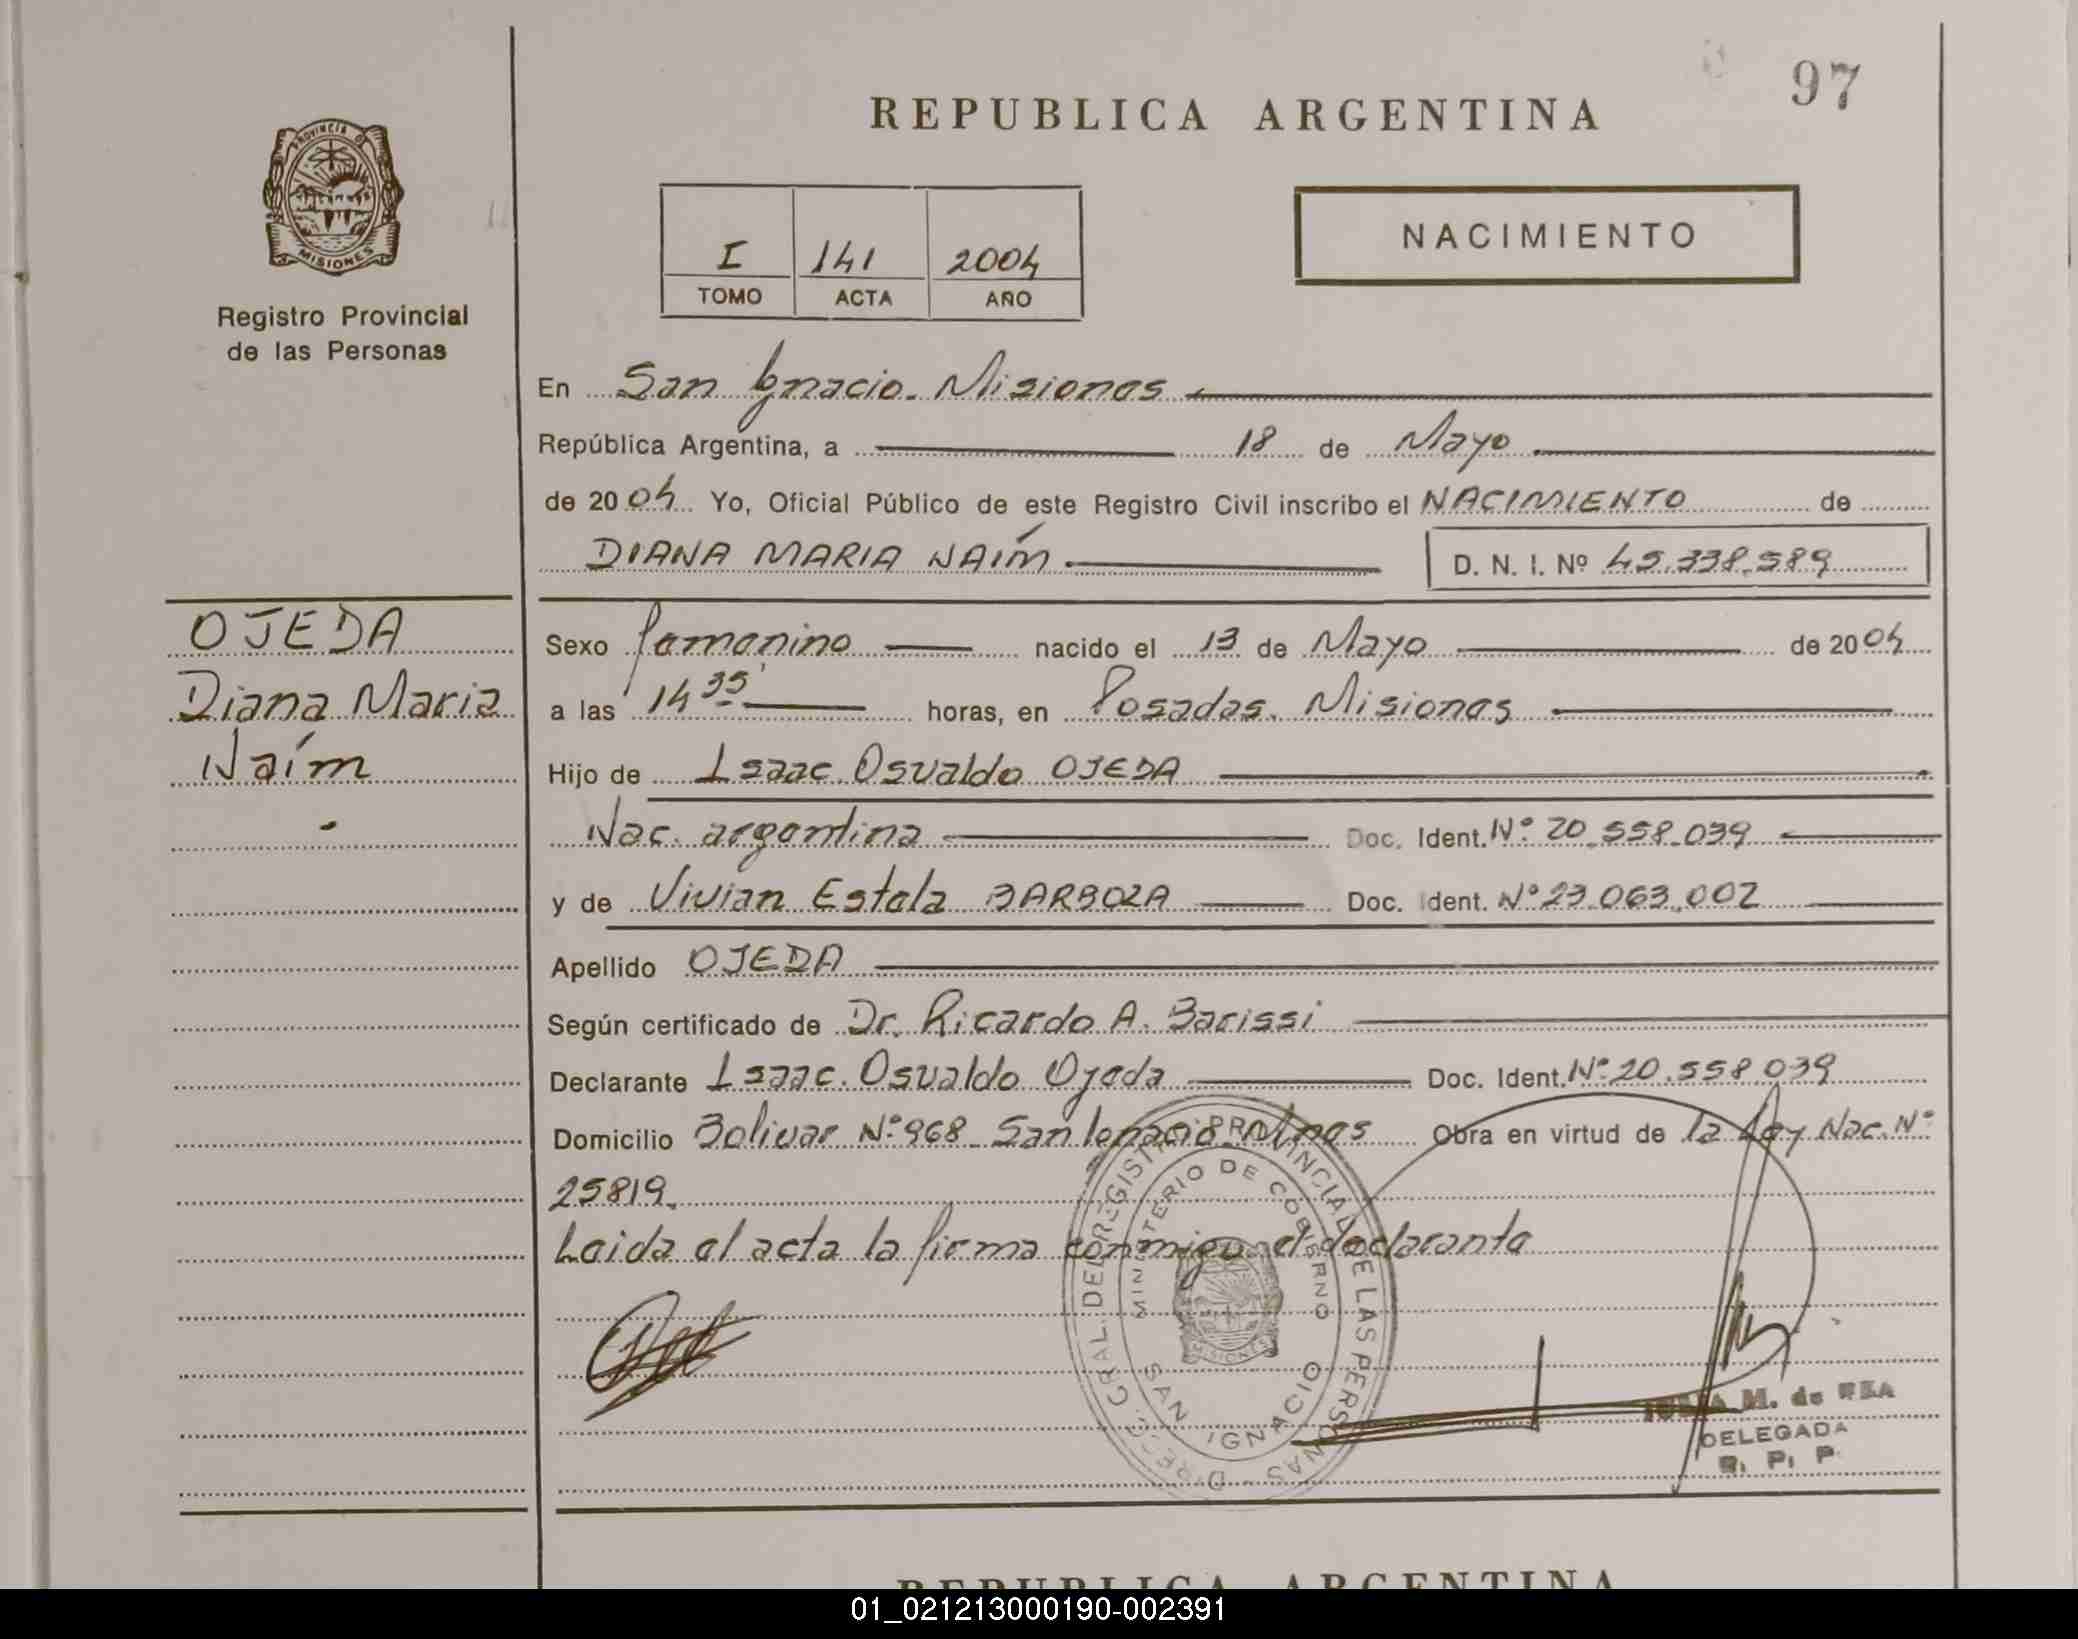 97
REPUBLICA ARGENTINA
PROVINCIA D
MISIONES
Registro Provincial
de las Personas
NACIMIENTO
I 141 2004
TOMO ACTA AÑO
En San Ignacio. Misiones
República Argentina, a 18 de Mayo
de 2004 Yo, Oficial Público de este Registro Civil inscribo el NACIMIENTO de
DIANA MARIA NAÍM D. N. I. Nº 45.338.589
OJEDA
Diana Maria
Naím
Sexo femenino nacido el 13 de Mayo de 2004
a las 14 35' horas, en Posadas. Misiones
Hijo de Isaac Osvaldo OJEDA
Nac. argentina Doc. Ident. Nº 20.558.039
y de Vivian Estela BARBOZA Doc. Ident. Nº 23.063.002
Apellido OJEDA
Según certificado de Dr. Ricardo A. Barissi
Declarante Isaac Osvaldo Ojeda Doc. Ident. Nº 20.558.039
Domicilio Bolivar Nº 968 San Ignacio Mnes Obra en virtud de la Ley Nac. Nº
25819.
Leida el acta la firma conmigo el declarante
DIRECC. GRAL. DEL REGISTRO PROVINCIAL DE LAS PERSONAS
MINISTERIO DE GOBIERNO
MISIONES
SAN IGNACIO
M. de REA
DELEGADA
R. P. P.
REPUBLICA ARGENTINA
01_021213000190-002391